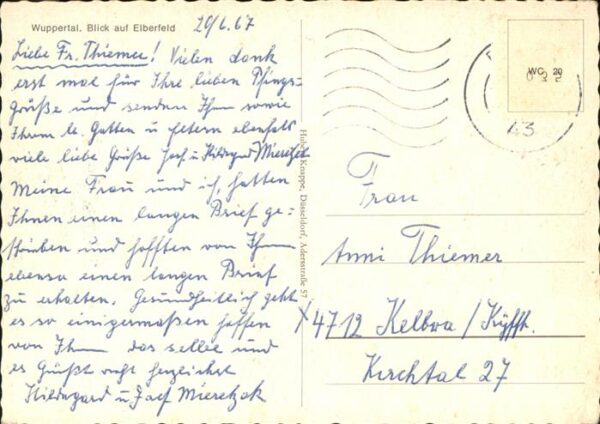 Wuppertal. Blick auf Elberfeld
20/6.67
Liebe Fr. Thiemer! Vielen dank
erst mal für Ihre lieben Pfings-
grüße und senden Ihnen sowie
Ihrem lb. Gatten u. Eltern ebenfals
viele liebe Grüße Josf u Hildegard Mieretzek
Meine Frau und ich, hatten
Ihnen einen langen Brief ge=
schrieben und hofften von Ihnen
ebenso einen langen Brief
zu erhalten. Gesundheitlich geht
es so einigermaßen hoffen
von Ihnen das selbe und
es Grüßt recht herzlichst
Hildegard u. Josf Mieretzek
Knappe, Düsseldorf, Adersstraße 57
WC 20
43
Frau
Anni Thiemer
4712 Kelbra / Kyffh.
Kirchtal 27